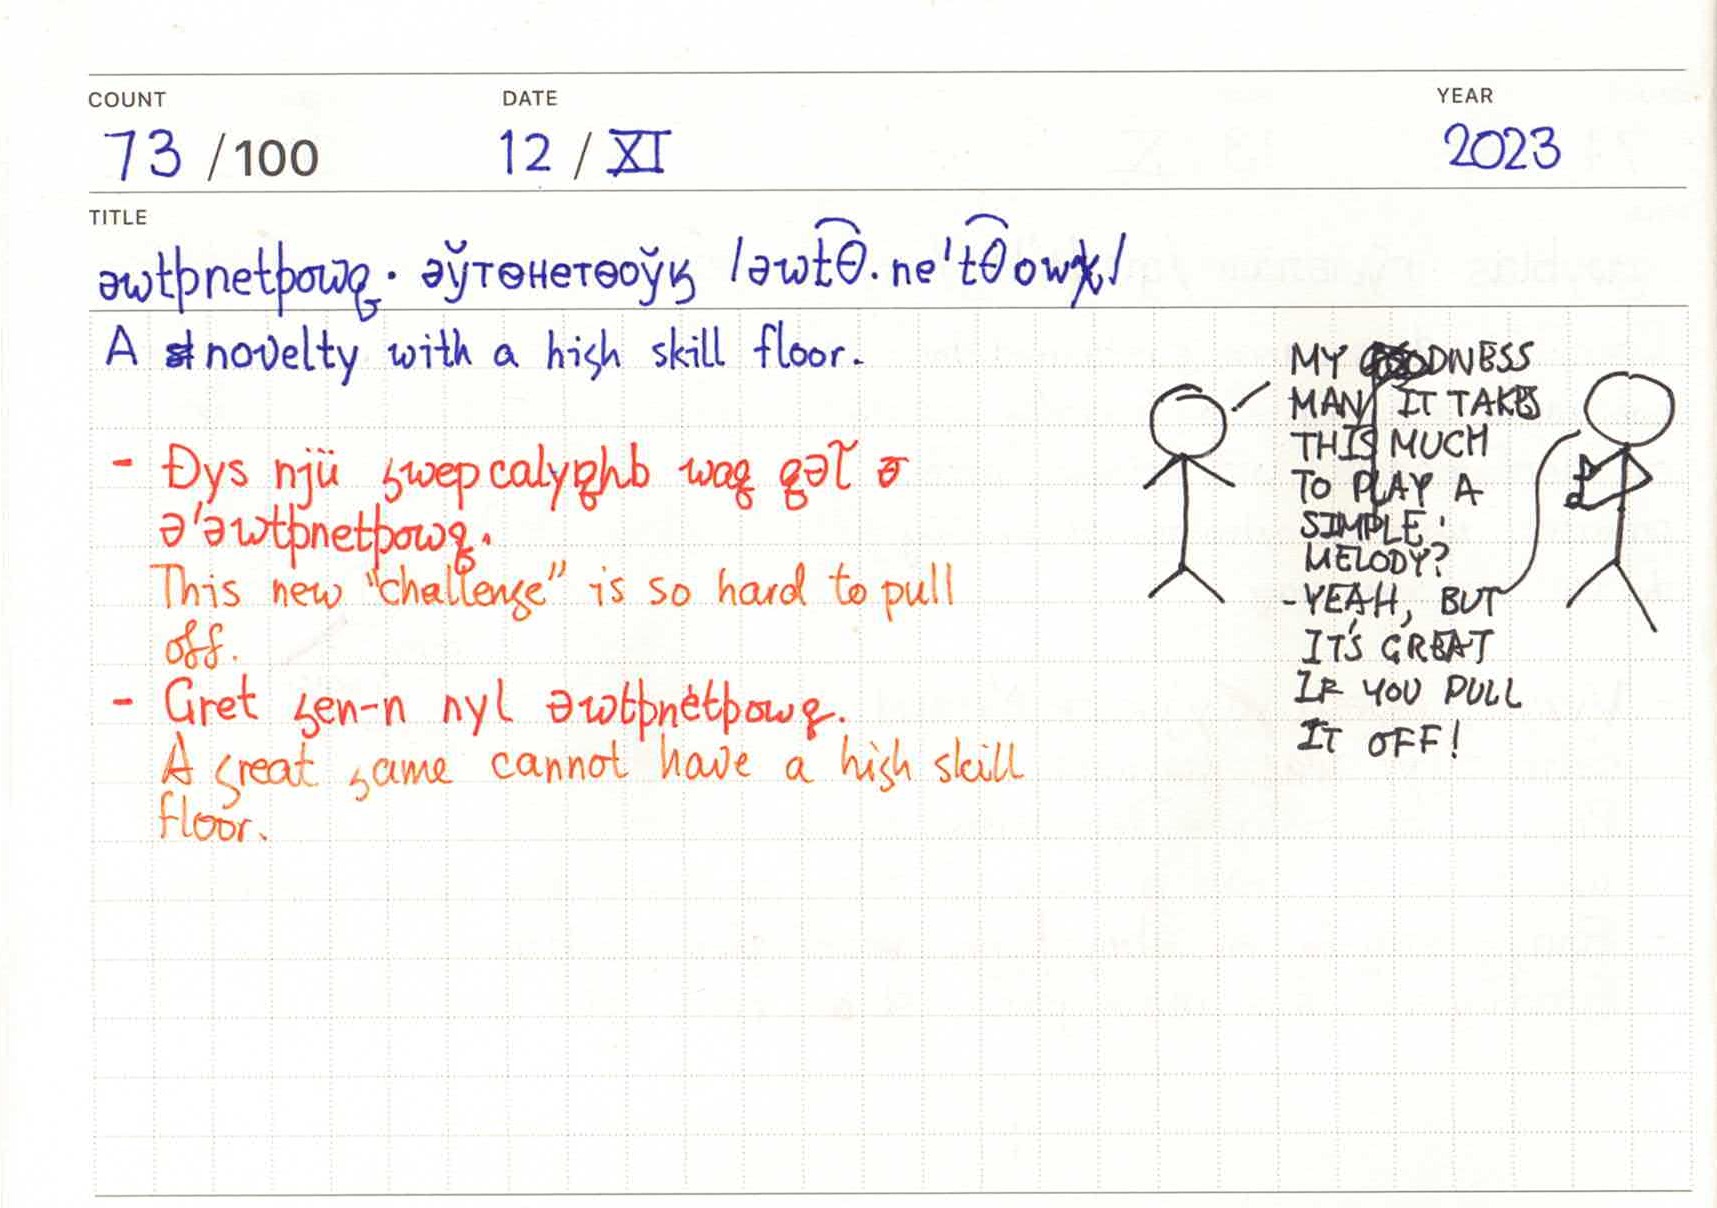 COUNT
DATE
YEAR
73 /100
12 / XI
2023
TITLE
əwtþnetþowꝗ · әўтѳнетѳоўӄ /əwt͡θ.neˈt͡θowχ/
A novelty with a high skill floor.
- Ðys njü ꝣwepcalyꝗhb waꝗ
ə'əwtþnetþowꝗ.
This new "challenge" is so hard to pull
off.
- Gret ꝣen-n nyl əwtþnetþowꝗ.
A great game cannot have a high skill
floor.
MY GOODNESS
MAN, IT TAKES
THIS MUCH
TO PLAY A
SIMPLE
MELODY?
-YEAH, BUT
IT'S GREAT
IF YOU PULL
IT OFF!